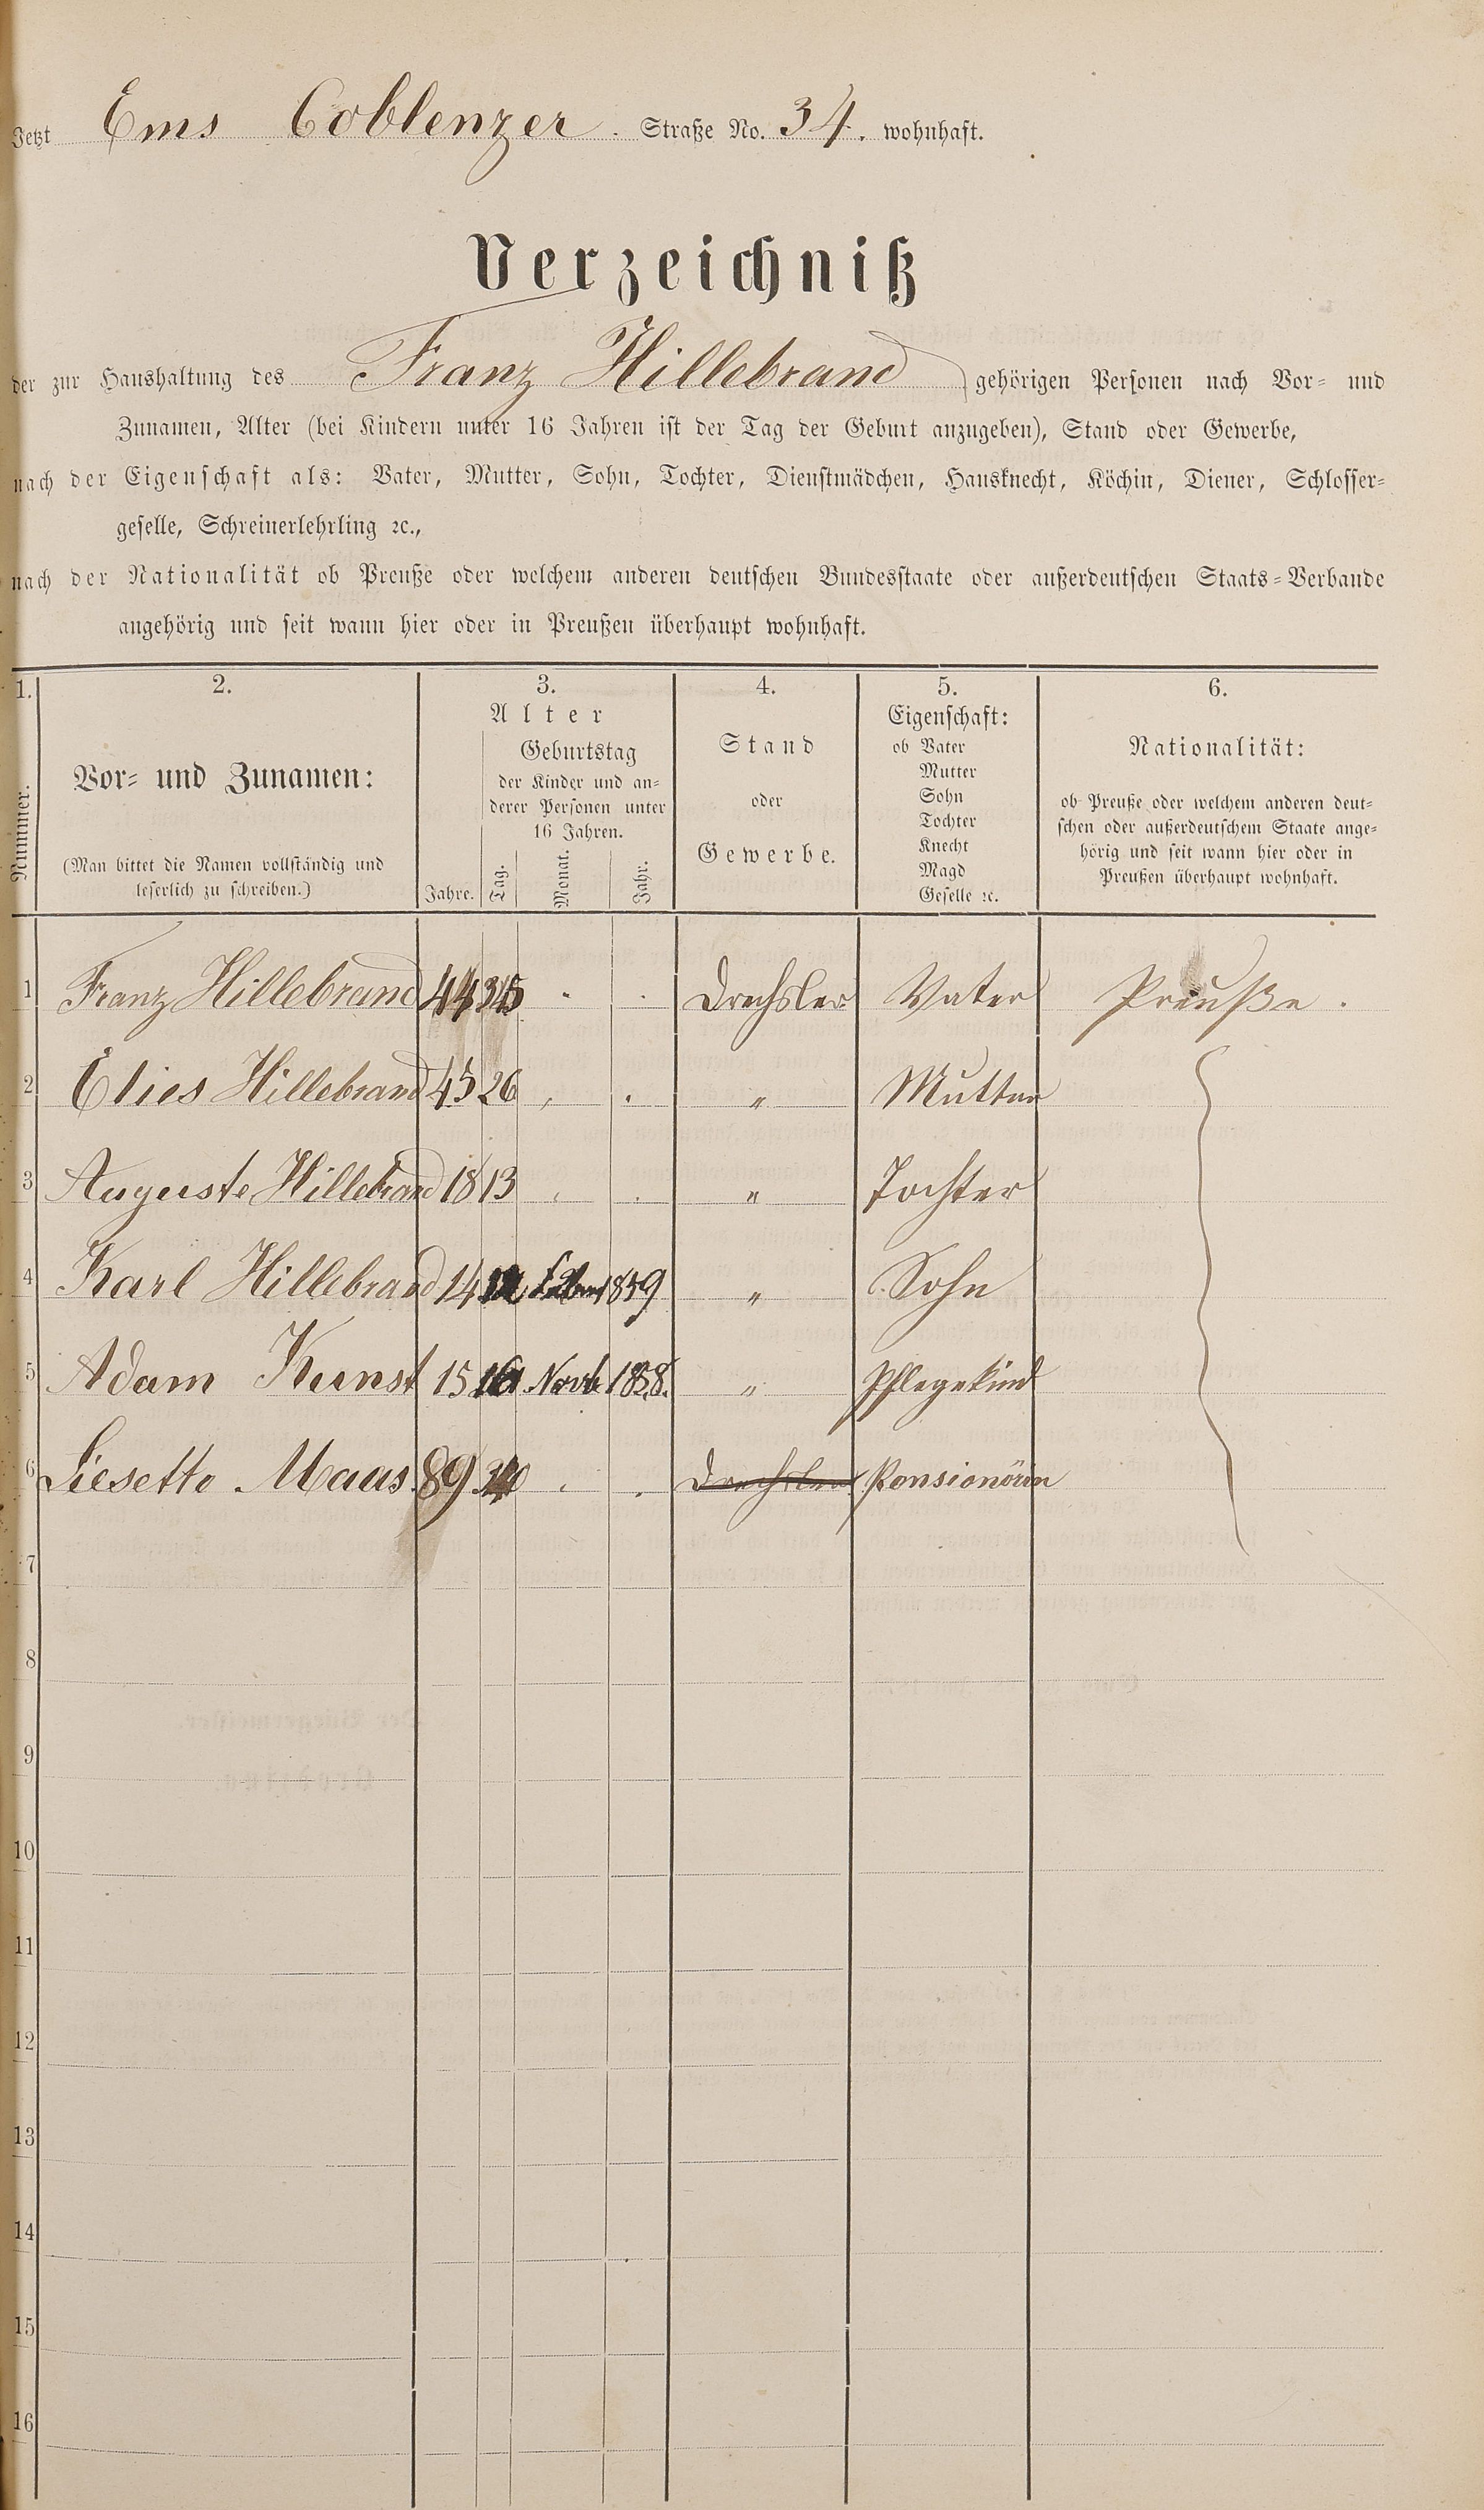 Jetzt Ems Coblenzer. Straße No. 34. wohnhaft.
Verzeichniß
der zur Haushaltung des Franz Hillebrand gehörigen Personen nach Vor- und
Zunamen, Alter (bei Kindern unter 16 Jahren ist der Tag der Geburt anzugeben), Stand oder Gewerbe,
nach der Eigenschaft als: Vater, Mutter, Sohn, Tochter, Dienstmädchen, Hausknecht, Köchin, Diener, Schlosser-
geselle, Schreinerlehrling ꝛc.,
nach der Nationalität ob Preuße oder welchem anderen deutschen Bundesstaate oder außerdeutschen Staats-Verbande
angehörig und seit wann hier oder in Preußen überhaupt wohnhaft.
1.
Nummer.
2.
Vor- und Zunamen:
(Man bittet die Namen vollständig und
leserlich zu schreiben.)
3.
Alter
Jahre.
Geburtstag
der Kinder und an-
derer Personen unter
16 Jahren.
Tag. Monat. Jahr.
4.
Stand
oder
Gewerbe.
5.
Eigenschaft:
ob Vater
Mutter
Sohn
Tochter
Knecht
Magd
Geselle ꝛc.
6.
Nationalität:
ob Preuße oder welchem anderen deut-
schen oder außerdeutschem Staate ange-
hörig und seit wann hier oder in
Preußen überhaupt wohnhaft.
1 Franz Hillebrand 44 Drechsler Vater Preuße.
2 Elies Hillebrand 45 26 " Mutter
3 Auguste Hillebrand 18 13 " Tochter
4 Karl Hillebrand 14 1859 " Sohn
5 Adam Kunst 15 Novb 1858. " Pflegekind
6 Liesette Maas 89 Drechsler Pensionärin
7
8
9
10
11
12
13
14
15
16